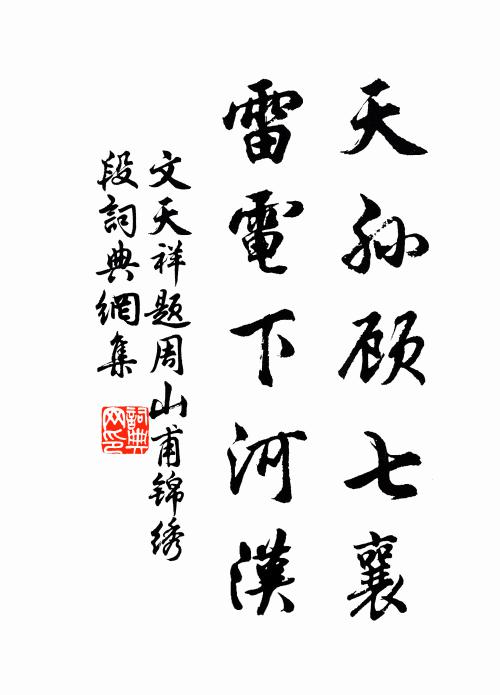 天孙顾七襄
雷電下河漢
文天祥题周山甫锦绣
段詞典網集
詞典网印